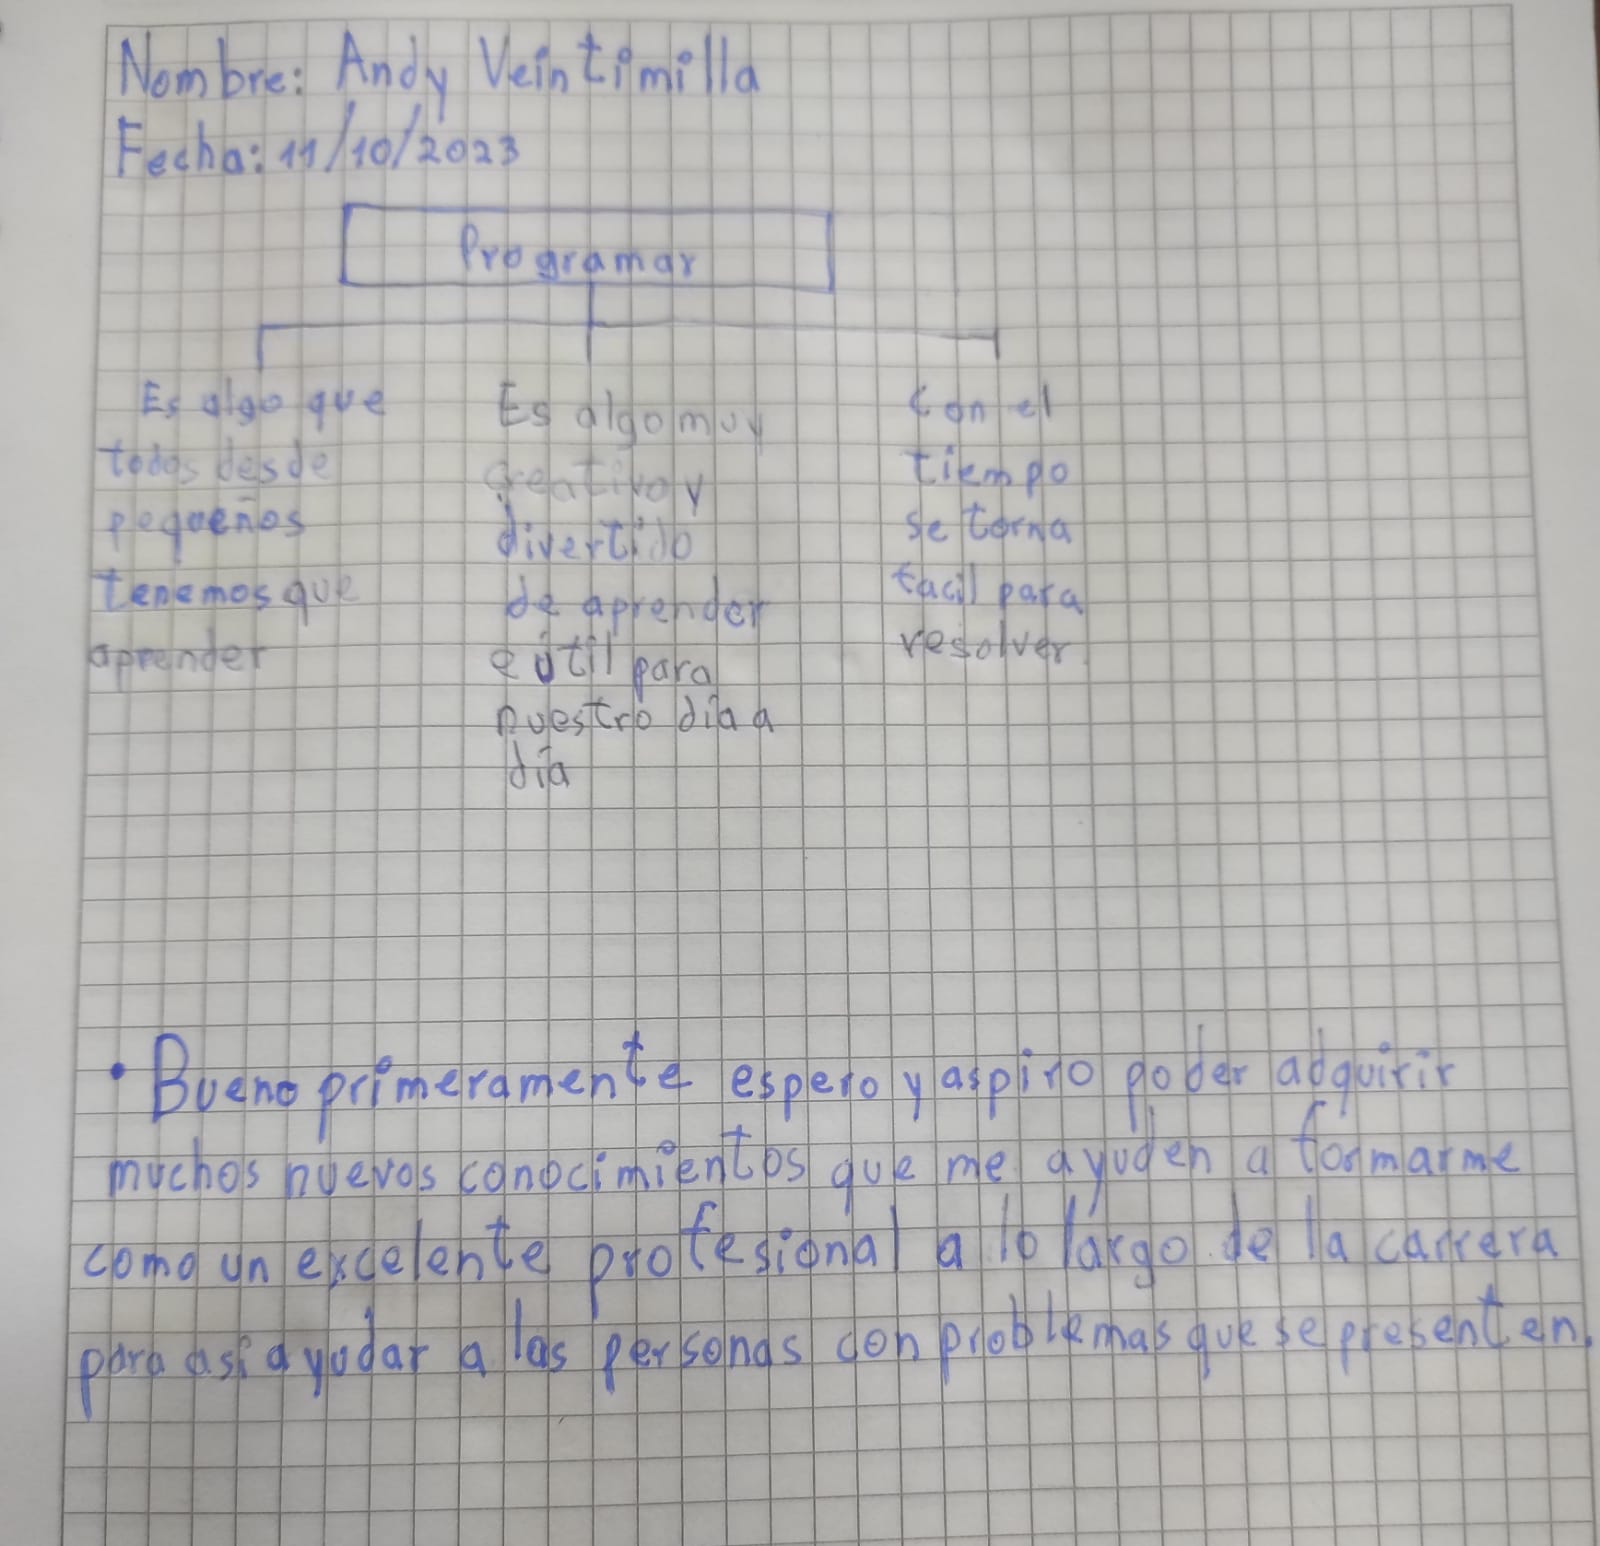 Nombre: Andy Veintimilla
Fecha: 11/10/2023
Programar
Es algo que
todos desde
pequeños
tenemos que
aprender
Es algo muy
creativo y
divertido
de aprender
e útil para
nuestro día a
día
Con el
tiempo
se torna
facil para
resolver
• Bueno primeramente espero y aspiro poder adquirir
muchos nuevos conocimientos que me ayuden a formarme
como un excelente profesional a lo largo de la carrera
para asi ayudar a las personas con problemas que se presenten.